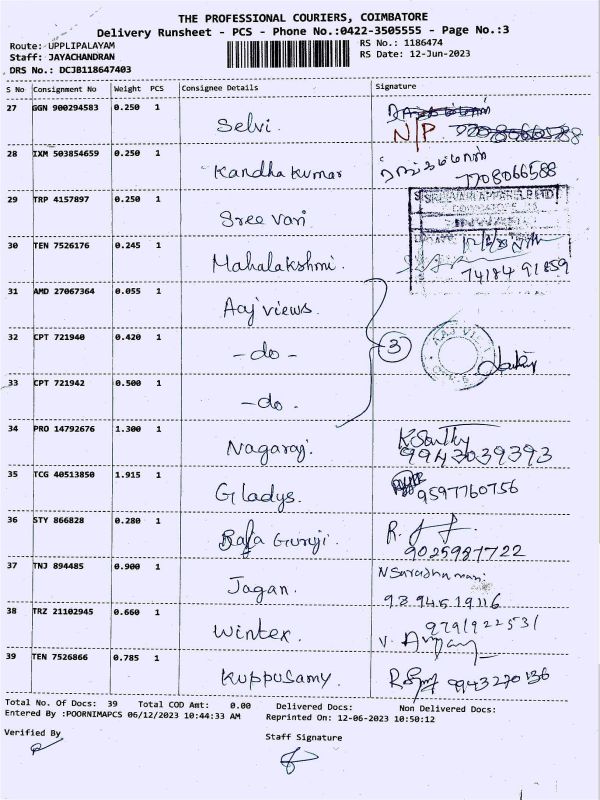 THE PROFESSIONAL COURIERS, COIMBATORE
Delivery Runsheet - PCS - Phone No.:0422-3505555 - Page No.:3
Route: UPPLIPALAYAM
RS No.: 1186474
Staff: JAYACHANDRAN
RS Date: 12-Jun-2023
DRS No.: DCJB118647403
S No Consignment No Weight PCS Consignee Details Signature
27 GGN 900294583 0.250 1 Selvi.
N/P 7708066588
28 IXM 503854659 0.250 1 Kandha Kumar
ரங்கம்மாள்
7708066588
29 TRP 4157897 0.250 1 Sree vari
30 TEN 7526176 0.245 1 Mahalakshmi.
74184 91859
31 AMD 27067364 0.055 1 Aaj views.
32 CPT 721940 0.420 1 - do - 3
33 CPT 721942 0.500 1 - do.
34 PRO 14792676 1.300 1 Nagaraj.
9943039393
35 TCG 40513850 1.915 1 Gladys.
9597760756
36 STY 866828 0.280 1 Raja Guruji. R.
9025987722
37 TNJ 894485 0.900 1 Jagan.
9894519116
38 TRZ 21102945 0.660 1 Winter.
9791922531
39 TEN 7526866 0.785 1 Kuppusamy. 9943270136
Total No. Of Docs: 39 Total COD Amt: 0.00 Delivered Docs: Non Delivered Docs:
Entered By :POORNIMAPCS 06/12/2023 10:44:33 AM Reprinted On: 12-06-2023 10:50:12
Verified By
Staff Signature